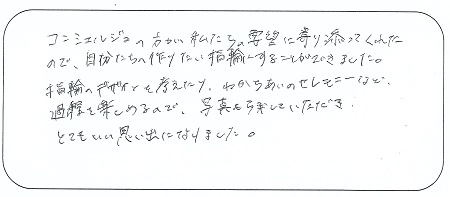 コンシェルジュの方が私たちの要望に寄り添ってくれた
ので、自分たちの作りたい指輪にすることができました。
指輪のデザインを考えたり、わかちあいのセレモニーなど、
過程も楽しめるので、写真も残していただき
とてもいい思い出になりました。